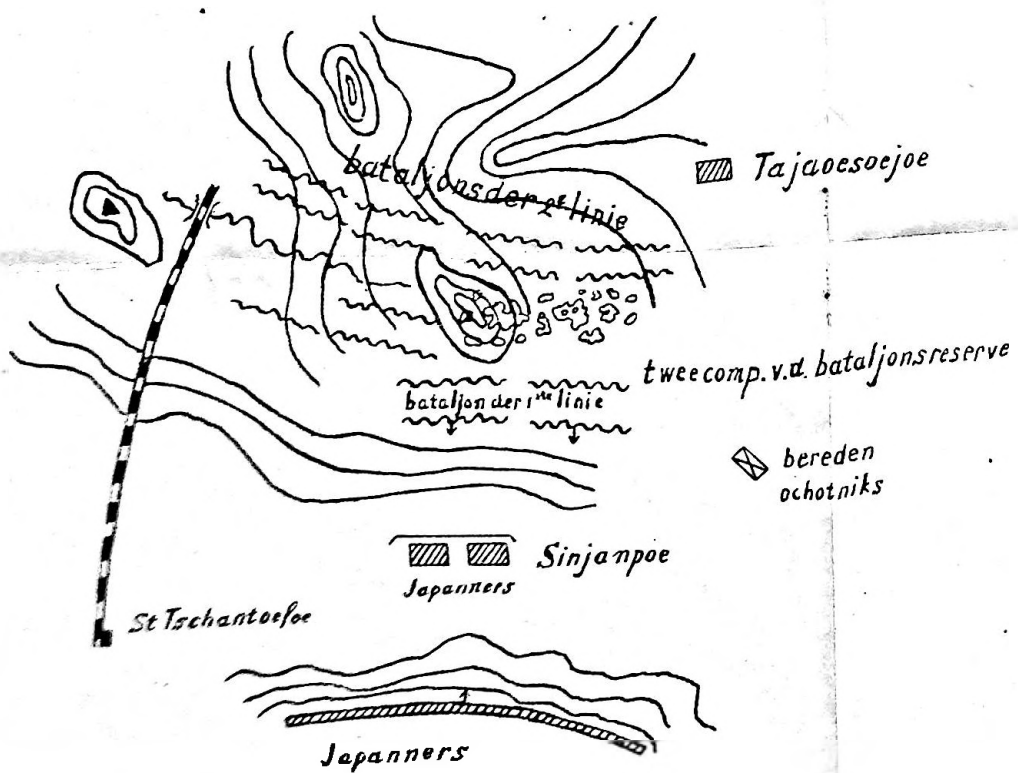 bataljons der 2e linie
Tajaoesoejoe
twee comp. v.d. bataljonsreserve
bataljon der 1ste linie
bereden
ochotniks
Sinjanpoe
Japanners
St Tschantoefoe
Japanners